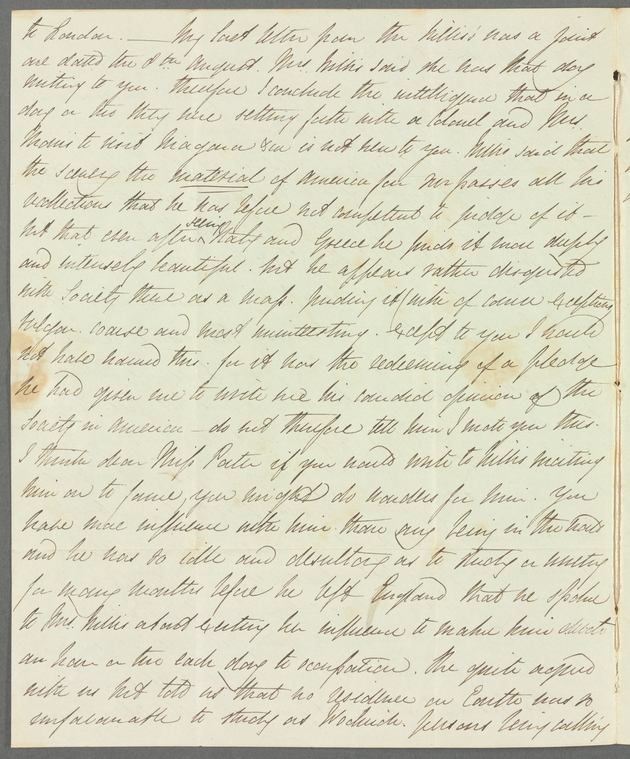 to London. — My last letter from the Willis's was a joint
one dated the 8th August Mrs. Willis said she was that day
writing to you. therefore I conclude the intelligence that in a
day or two they were setting forth with a Colonel and Mrs.
to visit Niagara &c is not new to you. Willis said that
the scenery the material of America far surpasses all his
recollections that he was before not competent to judge of it –
but that even after seeing Italy and Greece he finds it more deeply
and intensely beautiful. but he appears rather disgusted
with Society there as a mass. finding it (with of course exceptions
vulgar. coarse and most uninteresting. except to you I would
not have named this. for it was the redeeming of a pledge
he had given me to write me his candid opinion of the
Society in America – do not therefore tell him I wrote you this.
I think dear Miss Porter if you would write to Willis inciting
him on to fame, you might do wonders for him. You
have more influence with him than any being in the world
and he was so idle and desultory as to study or writing
for many months before he left England that we spoke
to Mrs. Willis about exerting her influence to make him devote
an hour or two each day to occupation. She quite agreed
with us but told us that no residence on Earth was so
unfavourable to study as Woolwich. persons being calling